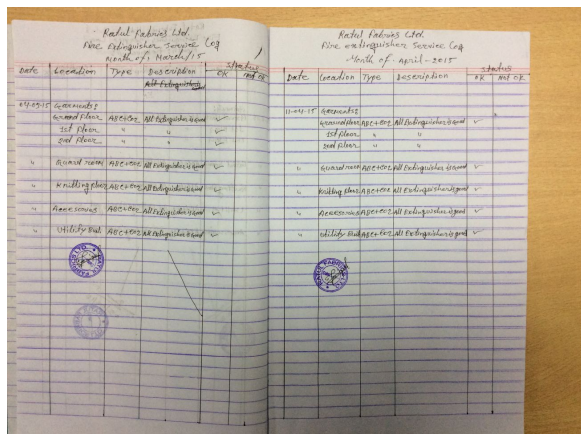 Ratul Fabrics Ltd.
Fire Extinguisher Service Log
Month of: March/15
Status
Date Location Type Description OK not OK
All Extinguisher
04-03-15 Garments:
Ground Floor ABC+CO2 All Extinguisher is good ✓
1st Floor " " ✓
2nd Floor " " ✓
" Guard room ABC+CO2 All Extinguisher is good ✓
" Knitting Floor ABC+CO2 All Extinguisher is good ✓
" Accessories ABC+CO2 All Extinguisher is good ✓
" Utility ABC+CO2 All Extinguisher is good ✓
RATUL FABRICS LTD.
Ratul Fabrics Ltd.
Fire extinguisher Service Log
Month of - April - 2015
Status
Date Location Type Description OK Not OK
11-04-15 Garments:
Ground Floor ABC+CO2 All Extinguisher is good ✓
1st Floor " "
2nd Floor " "
" Guard room ABC+CO2 All Extinguisher is good ✓
" Knitting Floor ABC+CO2 All Extinguisher is good ✓
" Accessories ABC+CO2 All Extinguisher is good ✓
" Utility ABC+CO2 All Extinguisher is good ✓
RATUL FABRICS LTD.